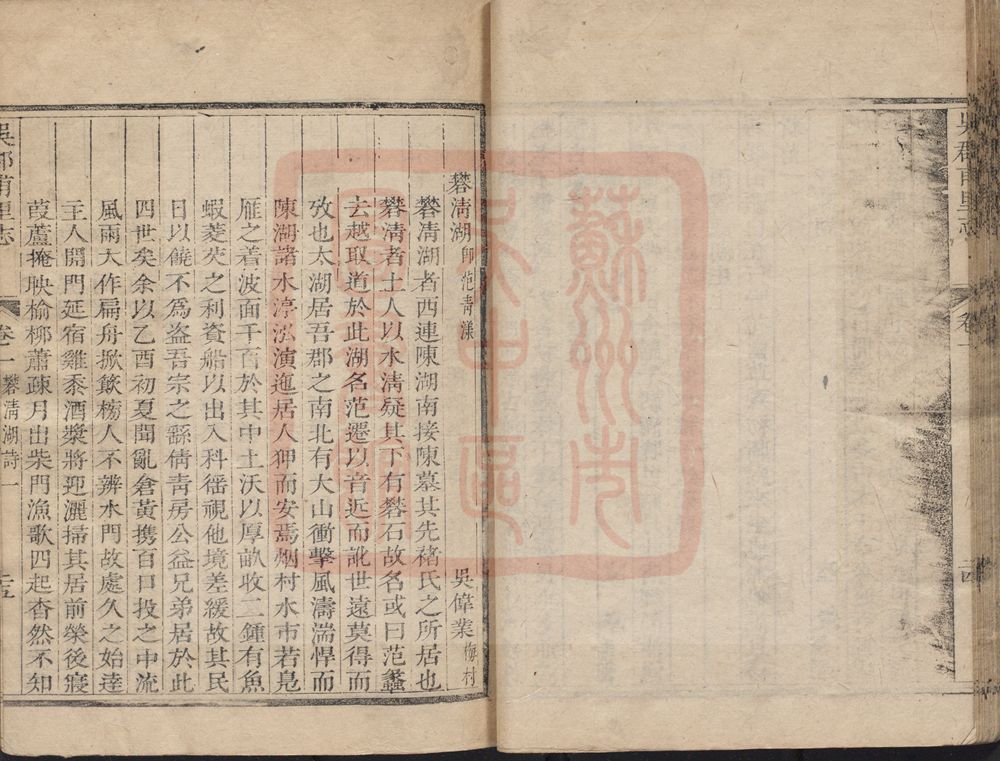 吳郡甫里志 卷一 二四
礬淸湖 卽范靑漾 吳偉業 梅村
礬淸湖者西連陳湖南接陳墓其先褚氏之所居也
礬淸者土人以水淸疑其下有礬石故名或曰范蠡
去越取道於此湖名范遷以音近而訛世遠莫得而
攷也太湖居吾郡之南北有大山衝擊風濤湍悍而
陳湖諸水渟泓演迤居人狎而安焉烟村水市若鳧
雁之着波面千百於其中土沃以厚畝收二鍾有魚
蝦菱芡之利資船以出入科徭視他境差緩故其民
日以饒不爲盜吾宗之繇倩靑房公益兄弟居於此
四世矣余以乙酉初夏聞亂倉黃携百口投之中流
風雨大作扁舟掀歘榜人不辨水門故處久之始達
主人開門延宿雞黍酒漿將迎灑掃其居前榮後寢
葭蘆掩映榆柳蕭疎月出柴門漁歌四起杳然不知
吳郡甫里志 卷一 礬淸湖詩一 二五